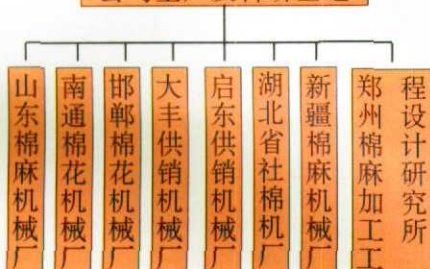 山东棉麻机械厂
南通棉花机械厂
邯郸棉花机械厂
大丰供销机械厂
启东供销机械厂
湖北省社棉机厂
新疆棉麻机械厂
郑州棉麻加工工
程设计研究所